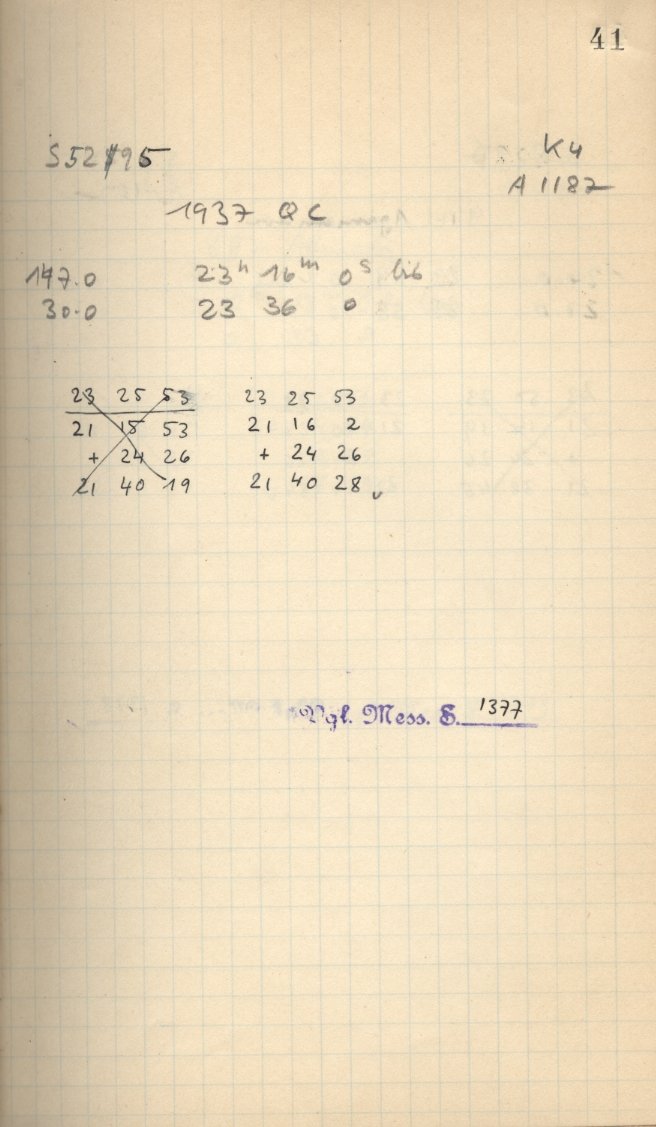 41
S5295
K4
A 1187
1937 QC
147.0 23h 16m 0s bis
30.0 23 36 0
23 25 53
21 15 53
+ 24 26
21 40 19
23 25 53
21 16 2
+ 24 26
21 40 28
Vgl. Mess. S. 1377